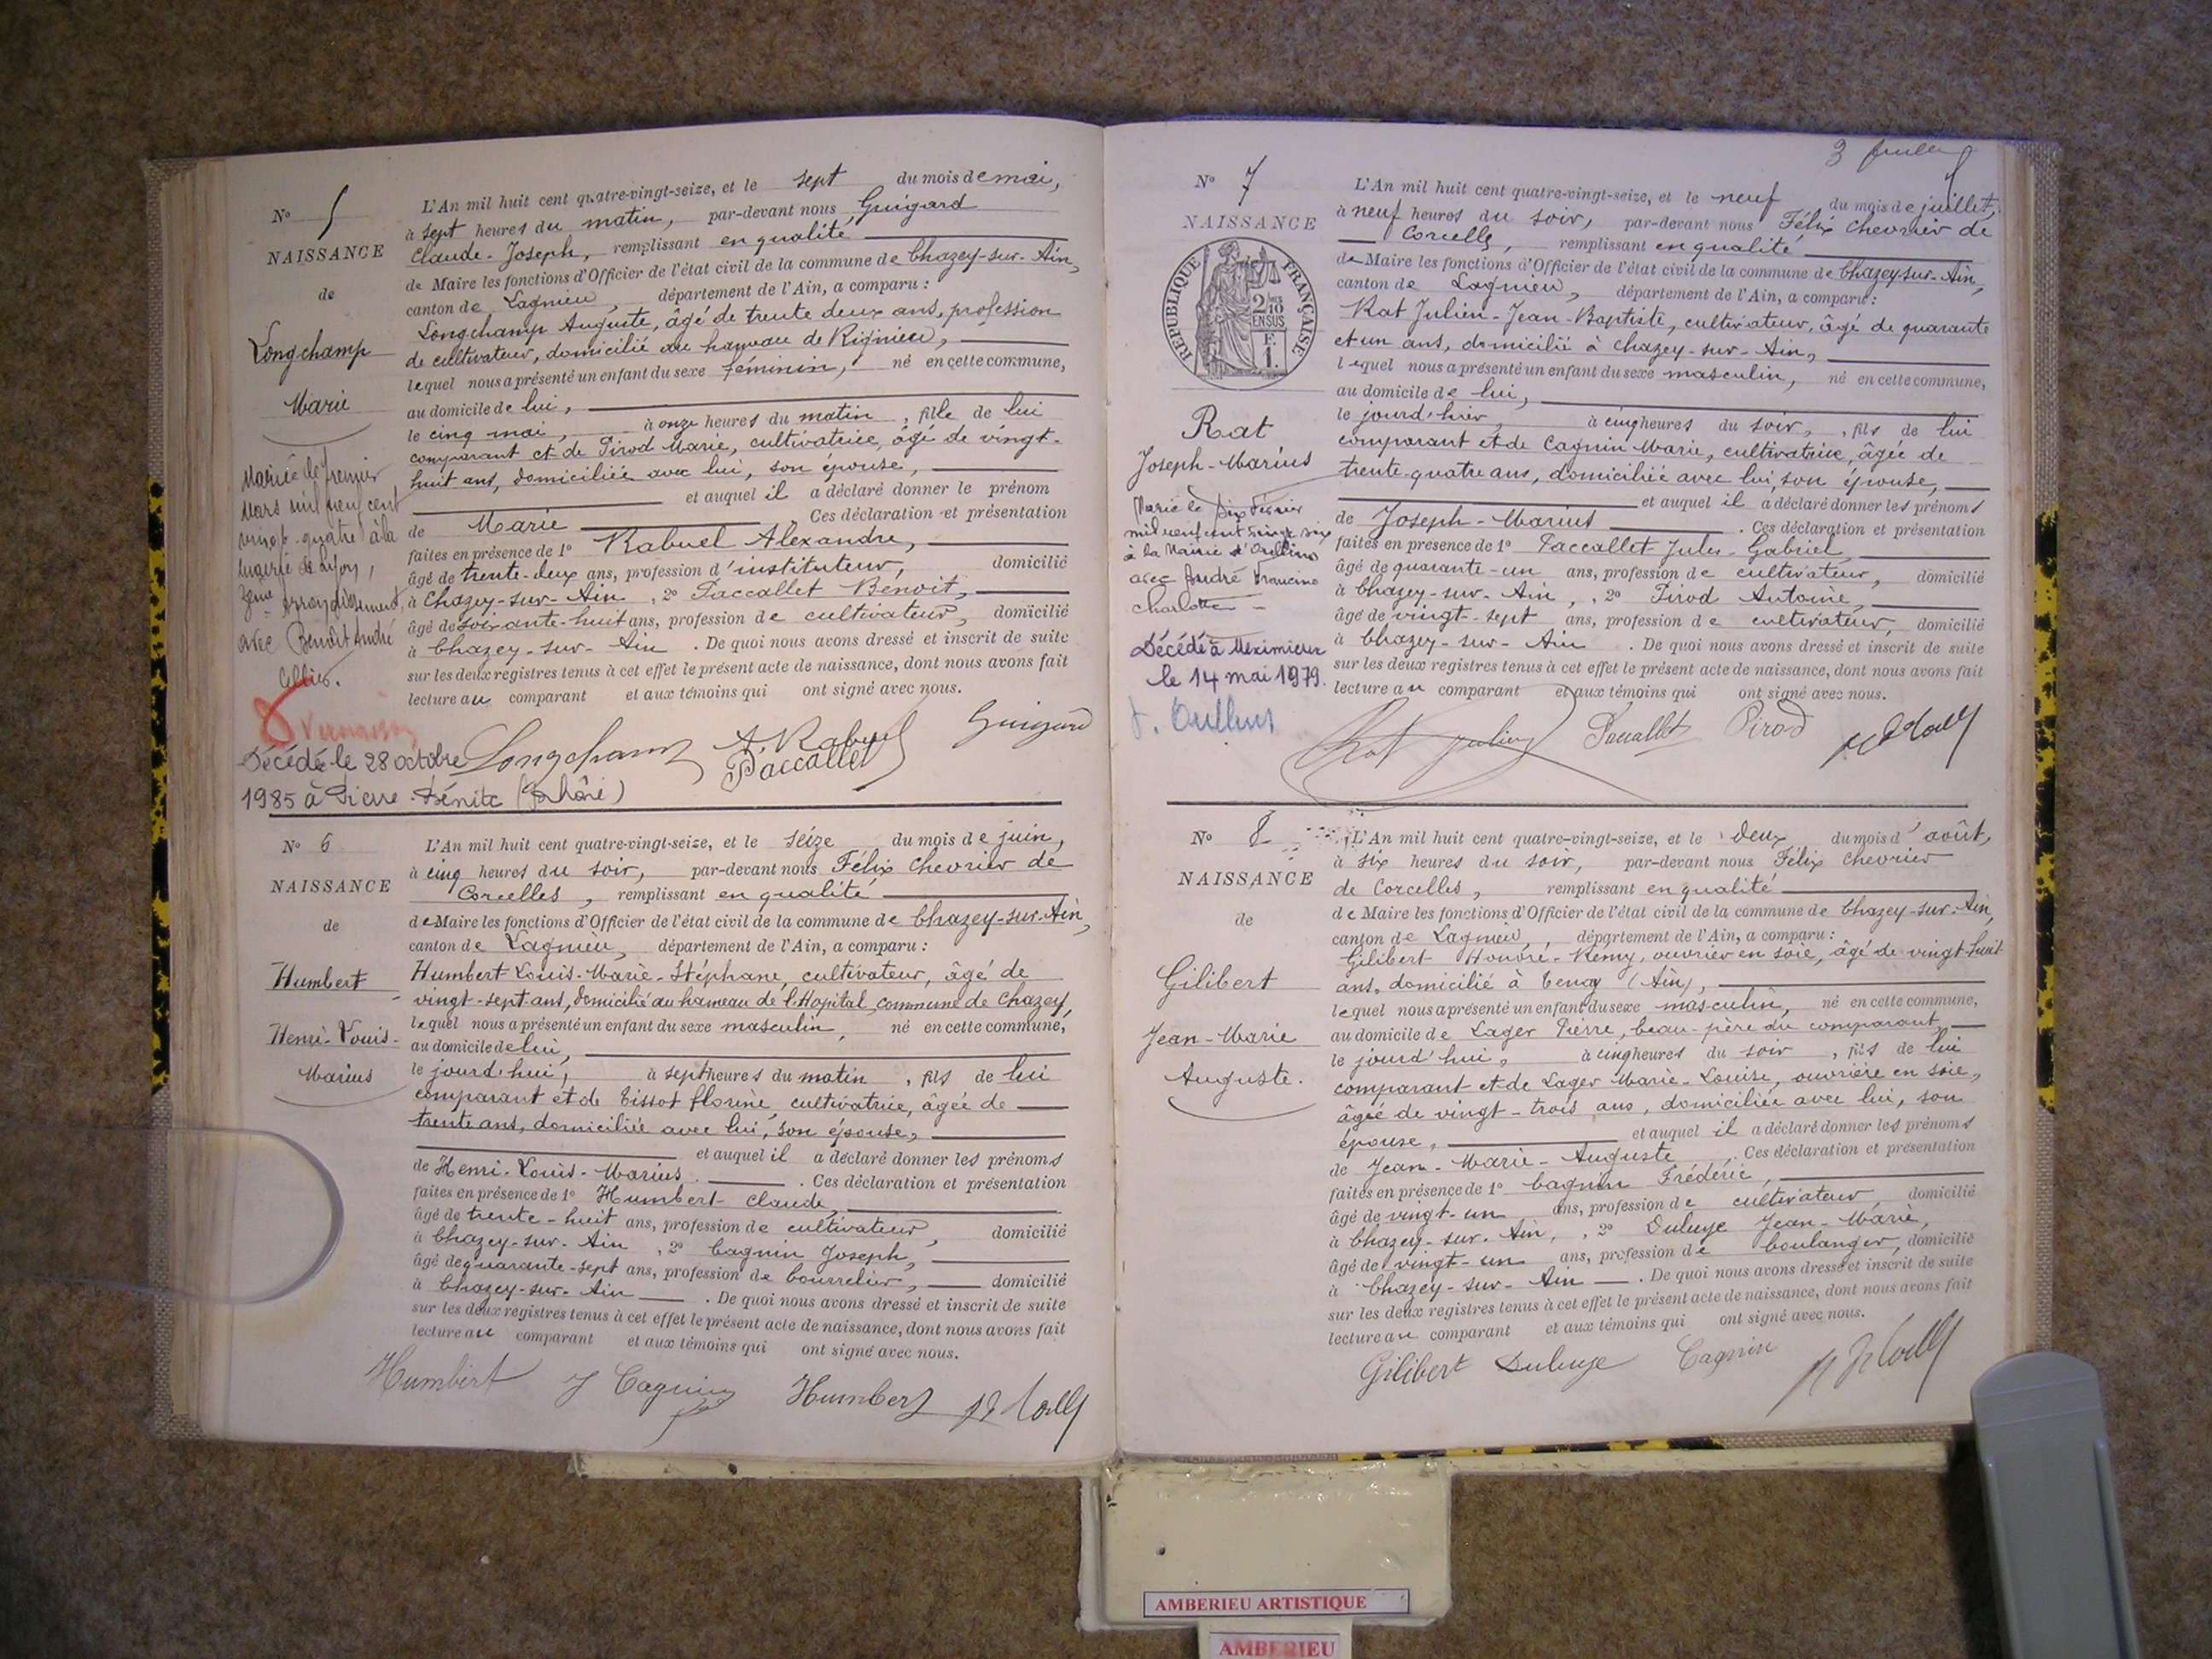 N° 5
NAISSANCE
de
Longchamp
Marie
Mariée le premier
mars mil neuf cent
vingt-quatre à la
mairie de Lyon,
3ème arrondissement,
avec Benoît André
Décédée le 28 octobre
1985 à Pierre-Bénite (Rhône)
L'An mil huit cent quatre-vingt-seize, et le sept du mois de mai,
à sept heures du matin, par-devant nous Guigard
Claude-Joseph, remplissant en qualité
de Maire les fonctions d'Officier de l'état civil de la commune de Chazey-sur-Ain,
canton de Lagnieu, département de l'Ain, a comparu :
Longchamp Auguste, âgé de trente deux ans, profession
de cultivateur, domicilié au hameau de Rignieu,
lequel nous a présenté un enfant du sexe féminin, né en cette commune,
au domicile de lui,
le cinq mai, à onze heures du matin, fille de lui
comparant et de Pirod Marie, cultivatrice, âgé de vingt-
huit ans, domiciliée avec lui, son épouse,
et auquel il a déclaré donner le prénom
de Marie Ces déclaration et présentation
faites en présence de 1° Rabuel Alexandre,
âgé de trente-deux ans, profession d'instituteur, domicilié
à Chazey-sur-Ain, 2° Paccallet Benoit,
âgé de soixante-huit ans, profession de cultivateur, domicilié
à Chazey-sur-Ain . De quoi nous avons dressé et inscrit de suite
sur les deux registres tenus à cet effet le présent acte de naissance, dont nous avons fait
lecture au comparant et aux témoins qui ont signé avec nous.
Longchamp A. Rabuel Guigard
Paccallet
N° 6
NAISSANCE
de
Humbert
Henri-Louis-
Marius
L'An mil huit cent quatre-vingt-seize, et le seize du mois de juin,
à cinq heures du soir, par-devant nous Félix Chevrier de
Corcelles, remplissant en qualité
de Maire les fonctions d'Officier de l'état civil de la commune de Chazey-sur-Ain,
canton de Lagnieu, département de l'Ain, a comparu :
Humbert Louis-Marie-Stéphane, cultivateur, âgé de
vingt-sept ans, domicilié au hameau de l'Hopital, commune de Chazey,
lequel nous a présenté un enfant du sexe masculin, né en cette commune,
au domicile de lui,
le jourd'hui, à sept heures du matin, fils de lui
comparant et de Tissot florine, cultivatrice, âgée de
trente ans, domiciliée avec lui, son épouse,
et auquel il a déclaré donner les prénoms
de Henri-Louis-Marius. Ces déclaration et présentation
faites en présence de 1° Humbert Claude,
âgé de trente-huit ans, profession de cultivateur, domicilié
à Chazey-sur-Ain, 2° Cagnin Joseph,
âgé de quarante-sept ans, profession de bourrelier, domicilié
à Chazey-sur-Ain . De quoi nous avons dressé et inscrit de suite
sur les deux registres tenus à cet effet le présent acte de naissance, dont nous avons fait
lecture au comparant et aux témoins qui ont signé avec nous.
Humbert J Cagnin Humbert
3
N° 7
NAISSANCE
REPUBLIQUE FRANÇAISE
2/10 EN SUS
F. 1.
Rat
Joseph-Marius
Marié le dix février
mil neuf cent vingt six
à la Mairie d'Oullins
avec André Francine
Charlotte
Décédé à Meximieux
le 14 mai 1979.
Oullins
L'An mil huit cent quatre-vingt-seize, et le neuf du mois de juillet,
à neuf heures du soir, par-devant nous Félix Chevrier de
Corcelles, remplissant en qualité
de Maire les fonctions d'Officier de l'état civil de la commune de Chazey-sur-Ain,
canton de Lagnieu, département de l'Ain, a comparu :
Rat Julien-Jean-Baptiste, cultivateur, âgé de quarante
et un ans, domicilié à Chazey-sur-Ain,
lequel nous a présenté un enfant du sexe masculin, né en cette commune,
au domicile de lui,
le jourd'hier, à cinq heures du soir, fils de lui
comparant et de Cagnin Marie, cultivatrice, âgée de
trente-quatre ans, domiciliée avec lui, son épouse,
et auquel il a déclaré donner les prénoms
de Joseph-Marius . Ces déclaration et présentation
faites en présence de 1° Paccallet Jules-Gabriel,
âgé de quarante-un ans, profession de cultivateur, domicilié
à Chazey-sur-Ain, 2° Pirod Antoine,
âgé de vingt-sept ans, profession de cultivateur, domicilié
à Chazey-sur-Ain . De quoi nous avons dressé et inscrit de suite
sur les deux registres tenus à cet effet le présent acte de naissance, dont nous avons fait
lecture au comparant et aux témoins qui ont signé avec nous.
Rat Julien Paccallet Pirod
N° 8
NAISSANCE
de
Gilibert
Jean-Marie
Auguste.
L'An mil huit cent quatre-vingt-seize, et le deux du mois d'août,
à six heures du soir, par-devant nous Félix Chevrier
de Corcelles, remplissant en qualité
de Maire les fonctions d'Officier de l'état civil de la commune de Chazey-sur-Ain,
canton de Lagnieu, département de l'Ain, a comparu :
Gilibert Honoré-Rémy, ouvrier en soie, âgé de vingt-huit
ans, domicilié à Tenay (Ain),
lequel nous a présenté un enfant du sexe masculin, né en cette commune,
au domicile de Lager Pierre, beau-père du comparant,
le jourd'hui, à cinq heures du soir, fils de lui
comparant et de Lager Marie-Louise, ouvrière en soie,
âgée de vingt-trois ans, domiciliée avec lui, son
épouse, et auquel il a déclaré donner les prénoms
de Jean-Marie-Auguste . Ces déclaration et présentation
faites en présence de 1° Cagnin Frédéric,
âgé de vingt-un ans, profession de cultivateur, domicilié
à Chazey-sur-Ain, 2° Duluye Jean-Marie,
âgé de vingt-un ans, profession de boulanger, domicilié
à Chazey-sur-Ain . De quoi nous avons dressé et inscrit de suite
sur les deux registres tenus à cet effet le présent acte de naissance, dont nous avons fait
lecture au comparant et aux témoins qui ont signé avec nous.
Gilibert Duluye Cagnin
AMBERIEU ARTISTIQUE
AMBERIEU